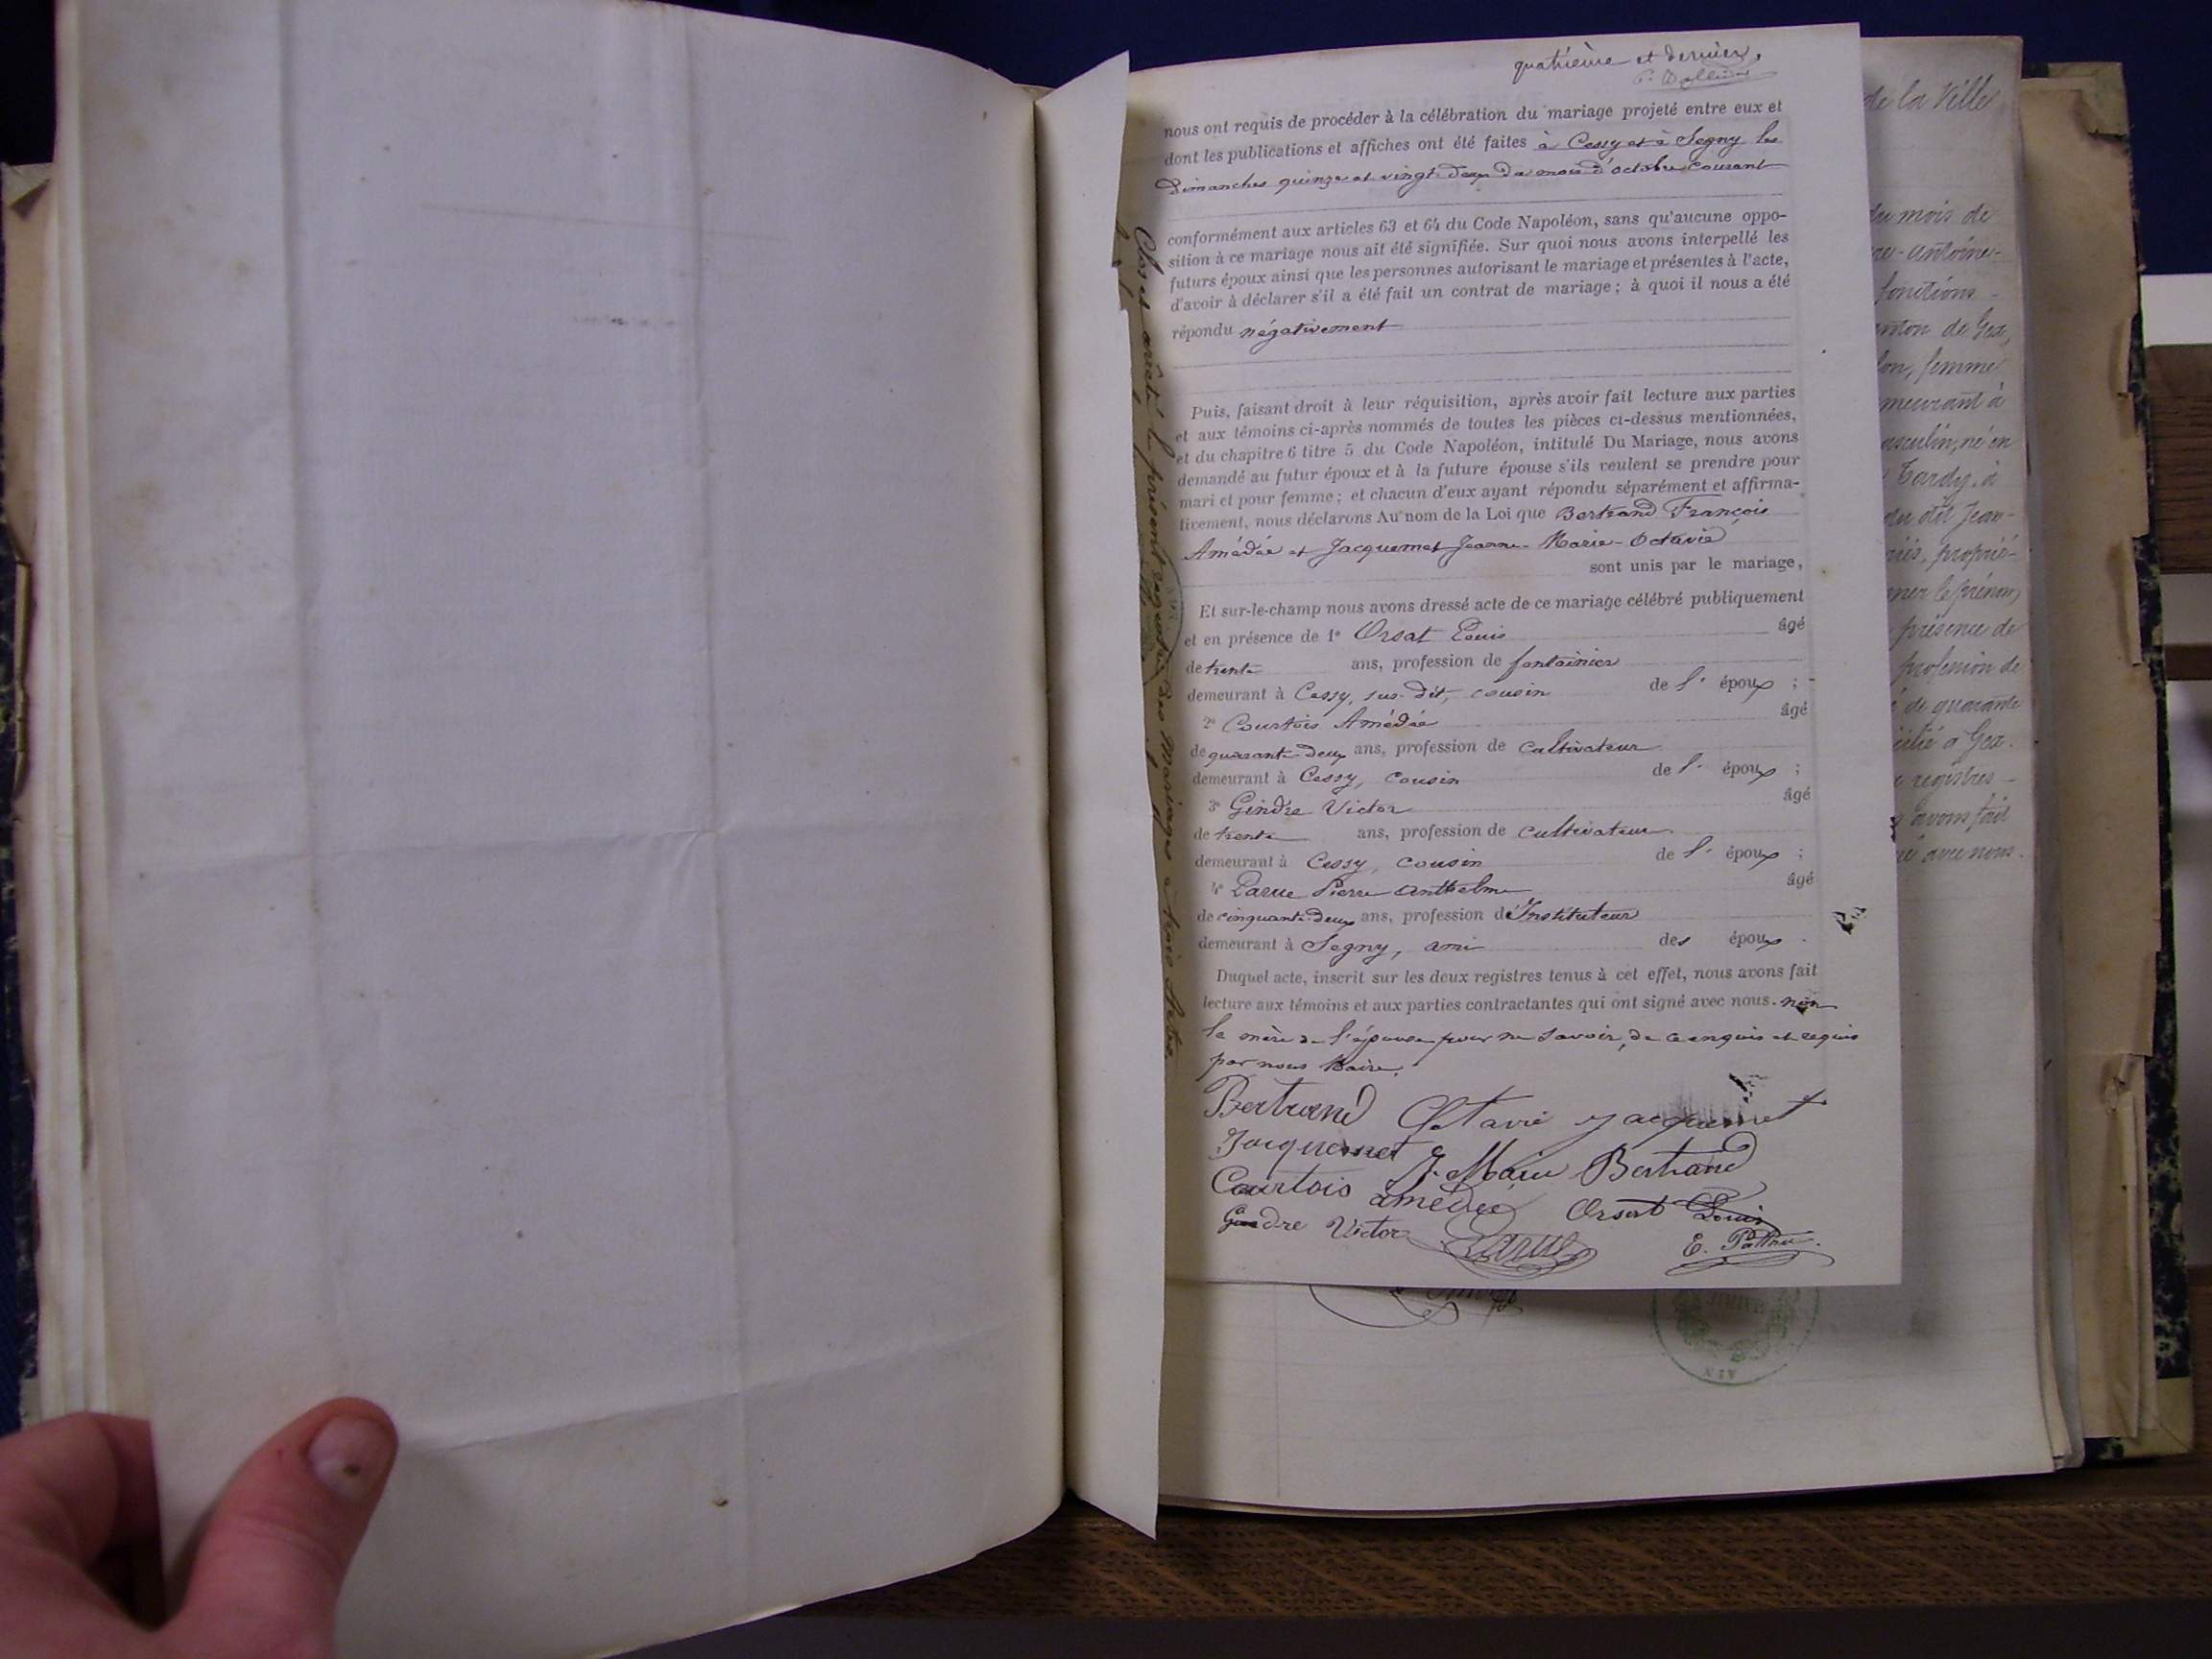 quatrième et dernier.
nous ont requis de procéder à la célébration du mariage projeté entre eux et
dont les publications et affiches ont été faites à Cessy et à Segny les
Dimanches quinze et vingt-deux du mois d'octobre courant
conformément aux articles 63 et 64 du Code Napoléon, sans qu'aucune oppo-
sition à ce mariage nous ait été signifiée. Sur quoi nous avons interpellé les
futurs époux ainsi que les personnes autorisant le mariage et présentes à l'acte,
d'avoir à déclarer s'il a été fait un contrat de mariage; à quoi il nous a été
répondu négativement
Puis, faisant droit à leur réquisition, après avoir fait lecture aux parties
et aux témoins ci-après nommés de toutes les pièces ci-dessus mentionnées,
et du chapitre 6 titre 5 du Code Napoléon, intitulé Du Mariage, nous avons
demandé au futur époux et à la future épouse s'ils veulent se prendre pour
mari et pour femme; et chacun d'eux ayant répondu séparément et affirma-
tivement, nous déclarons Au nom de la Loi que Bertrand François
Amédée et Jacquemet Jeanne-Marie-Octavie
sont unis par le mariage,
Et sur-le-champ nous avons dressé acte de ce mariage célébré publiquement
et en présence de 1° Orsat Louis âgé
de trente ans, profession de fontainier
demeurant à Cessy, sus-dit, cousin de l' époux ;
2° Courtois Amédée âgé
de quarante-deux ans, profession de cultivateur
demeurant à Cessy, cousin de l' époux ;
3° Gindre Victor âgé
de trente ans, profession de cultivateur
demeurant à Cessy, cousin de l' époux ;
4° Larue Pierre Anthelme âgé
de cinquante-deux ans, profession d'Instituteur
demeurant à Segny, ami des époux .
Duquel acte, inscrit sur les deux registres tenus à cet effet, nous avons fait
lecture aux témoins et aux parties contractantes qui ont signé avec nous. non
la mère de l'épouse pour ne savoir, de ce enquis et requis
par nous Maire.
Bertrand Octavie Jacquemet
Jacquemet J. Marie Bertrand
Courtois amédée Orsat Louis
Gindre Victor Larue
Clos et arrêté le présent registre des Mariages à trois actes.
de la Ville
du mois de
Antoine-
fonctions
canton de Gex,
femme
meurant à
masculin, né en
Tardy, à
du dit Jean-
proprié-
prénom
présence de
profession de
de quarante
à Gex.
registres
avons fait
avec nous.
AIN